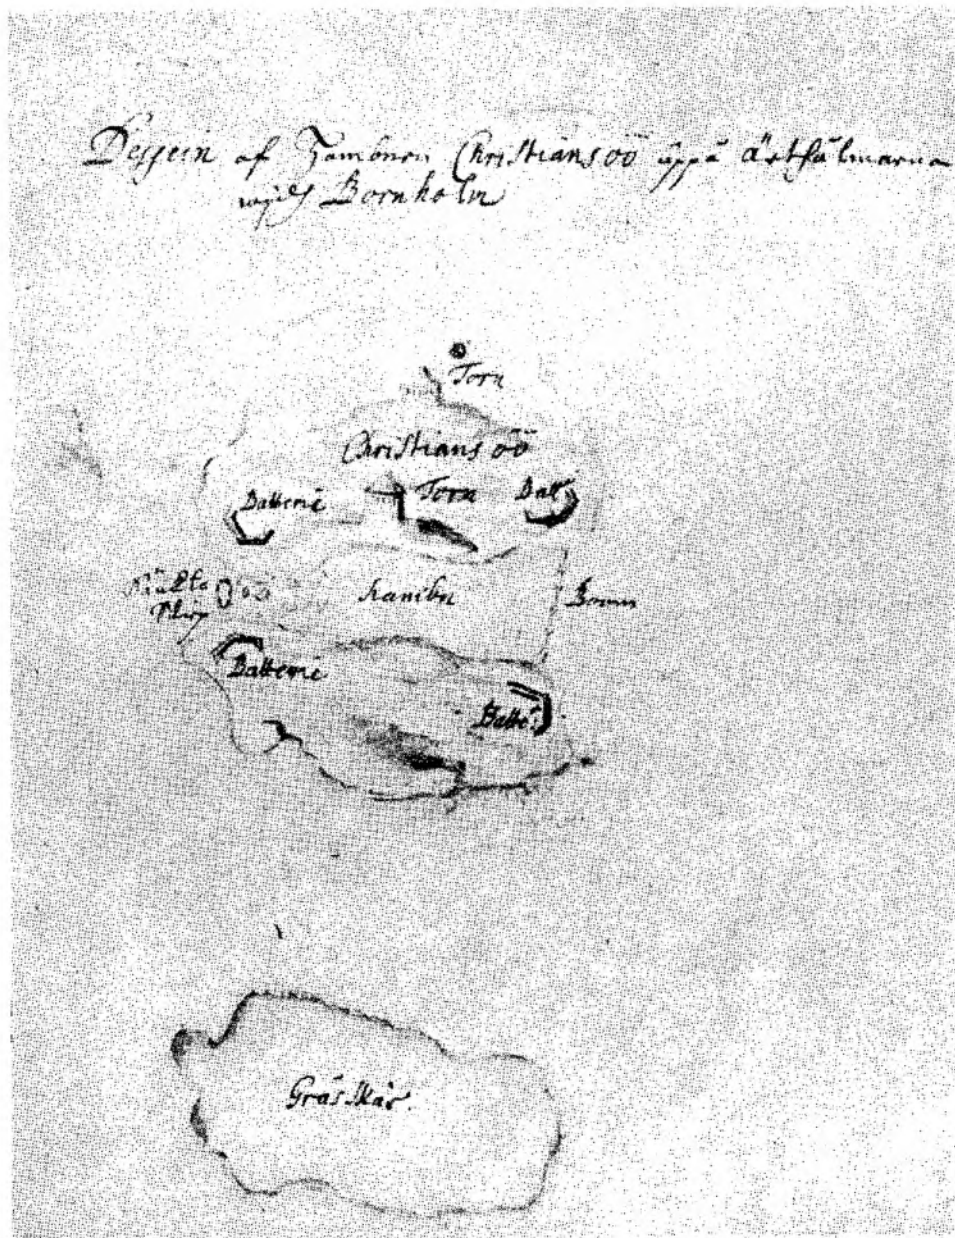 Dessein af Hambnen Christiansöö uppå ärthålmarna
wijd Bornholm
Torn
Christians öö
Batterie
Torn
Batt
hambn
Bomm
Batterie
Batte:
Gräs skär.